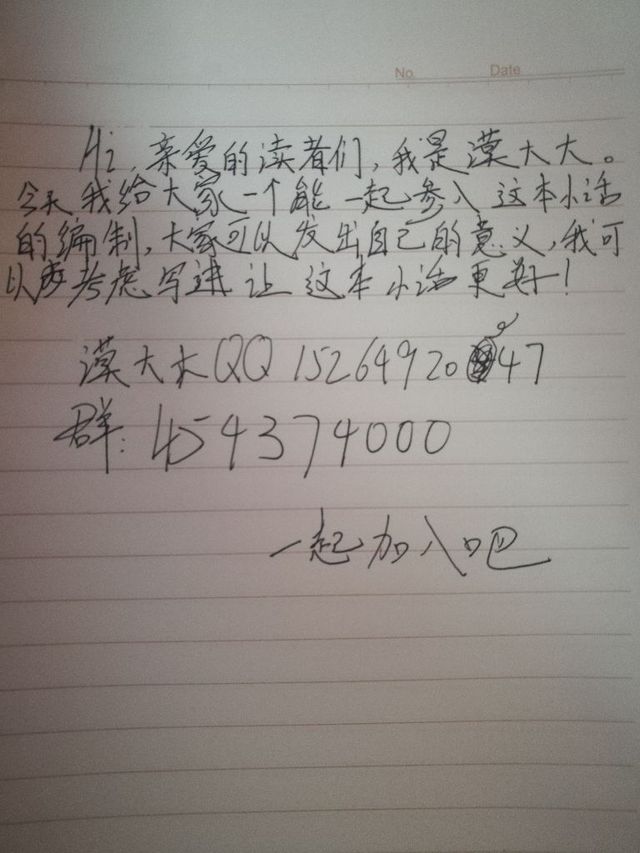 No. Date
Hi, 亲爱的读者们,我是漠大大。
今天我给大家一个能一起参入这本小话
的编制,大家可以发出自己的意义,我可
以考虑写进让这本小话更好!
漠大大QQ 15264920 47
群:454374000
一起加入吧